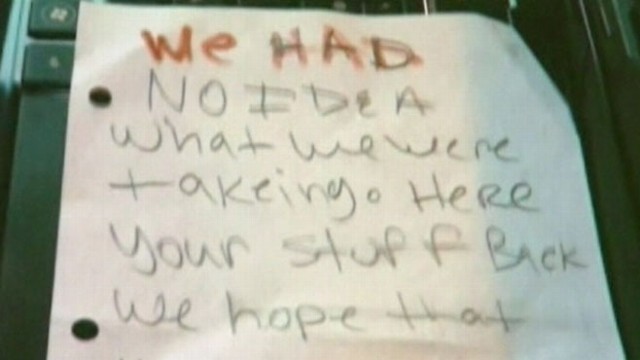 We HAD
NO IDeA
what we were
takeing. Here
your stuff Back
We hope that